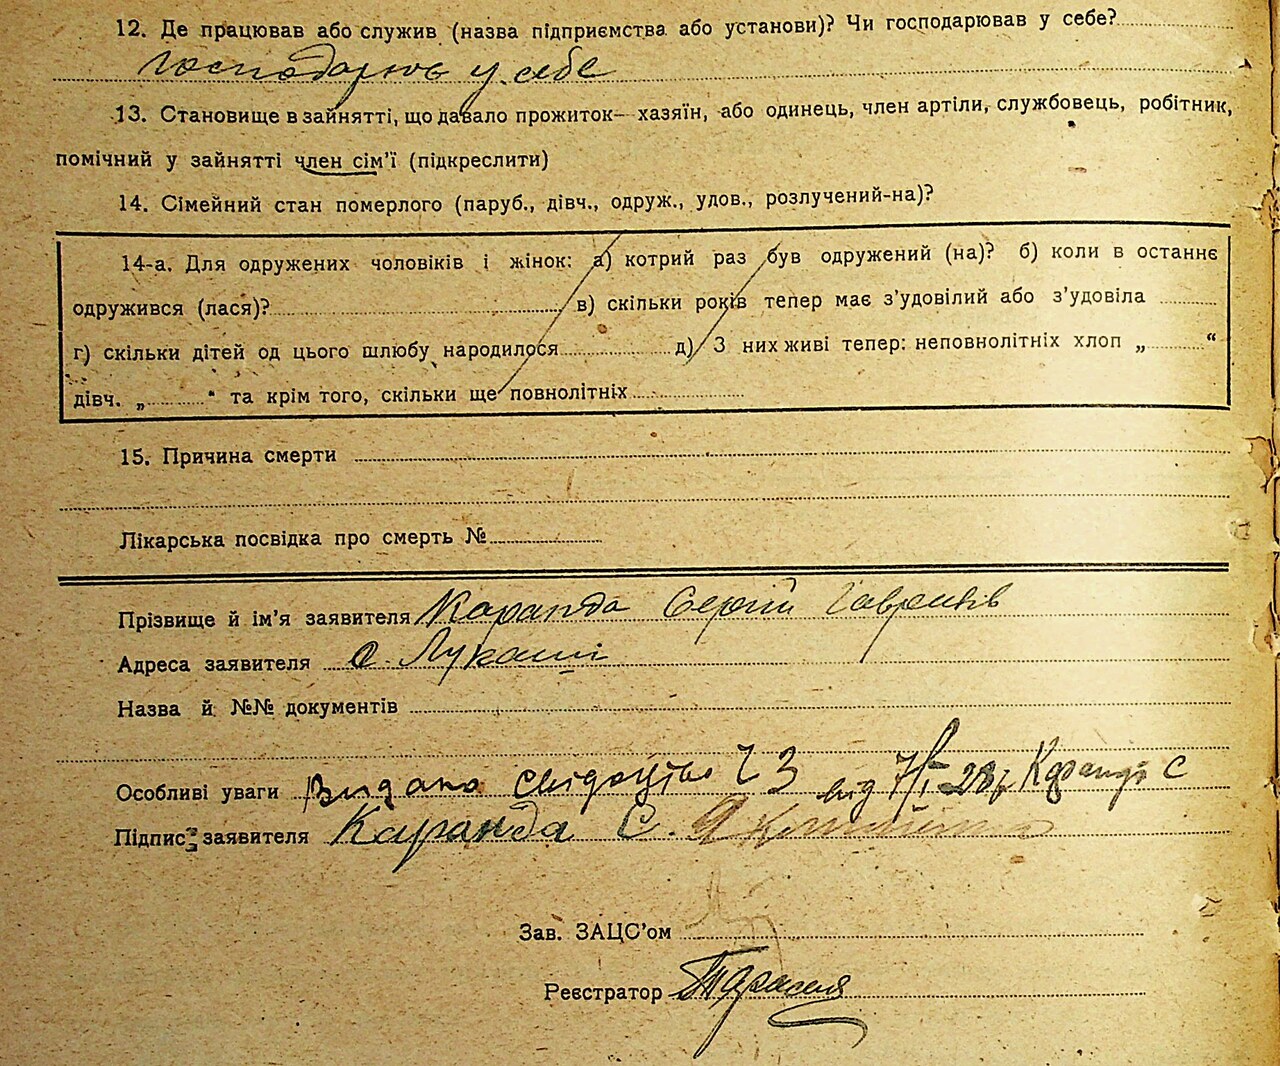 12. Де працював або служив (назва підприємства або установи)? Чи господарював у себе?
господарює у себе
13. Становище в зайнятті, що давало прожиток— хазяїн, або одинець, член артіли, службовець, робітник,
помічний у зайнятті член сім'ї (підкреслити)
14. Сімейний стан померлого (паруб., дівч., одруж., удов., розлучений-на)?
14-а. Для одружених чоловіків і жінок: а) котрий раз був одружений (на)? б) коли в останнє
одружився (лася)? в) скільки років тепер має з'удовілий або з'удовіла
г) скільки дітей од цього шлюбу народилося д) З них живі тепер: неповнолітніх хлоп „ “
дівч. „ “ та крім того, скільки ще повнолітніх
15. Причина смерти
Лікарська посвідка про смерть №
Прізвище й ім'я заявителя Каранда Сергій Гаврилів
Адреса заявителя с. Лукаші
Назва й №№ документів
Особливі уваги Видано свідоцтво Ч 3 від 7/I 28 р Каранді С
Підпис заявителя Каранда С.
Зав. ЗАЦС'ом
Реєстратор